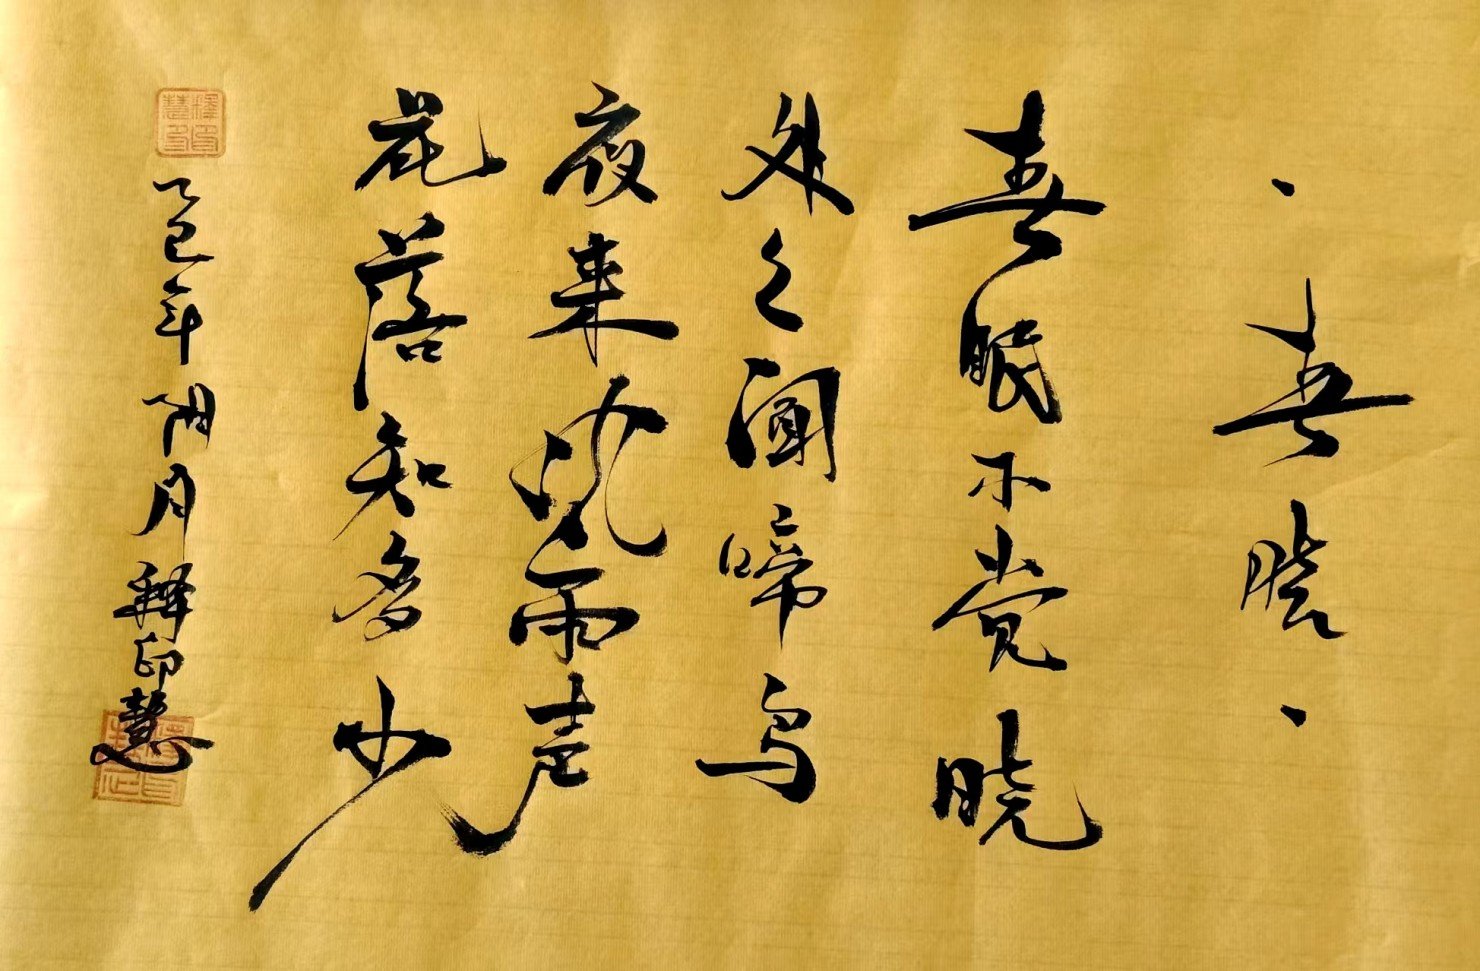 ·春晓·
春眠不觉晓
处々闻啼鸟
夜来风雨声
花落知多少
乙巳年阳月释印慧